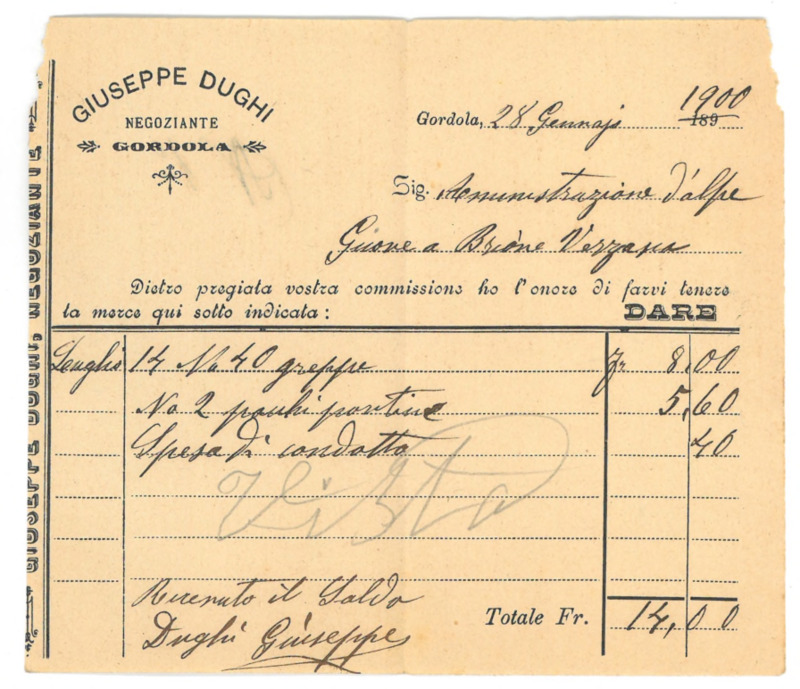 GIUSEPPE DUGHI
NEGOZIANTE
GORDOLA
Gordola, 28 Gennajo 1900
189
Sig. Aministrazione d'alpe
a Brione Verzasca
Dietro pregiata vostra commissione ho l'onore di farvi tenere
la merce qui sotto indicata: DARE
Luglio 14 No 40 greppe fr 8,00
No 2 pachi pontine 5,60
Spesa di condotta 40
Vista
Ricevuto il Saldo
Totale Fr. 14,00
Dughi Giuseppe
GIUSEPPE DUGHI, NEGOZIANTE